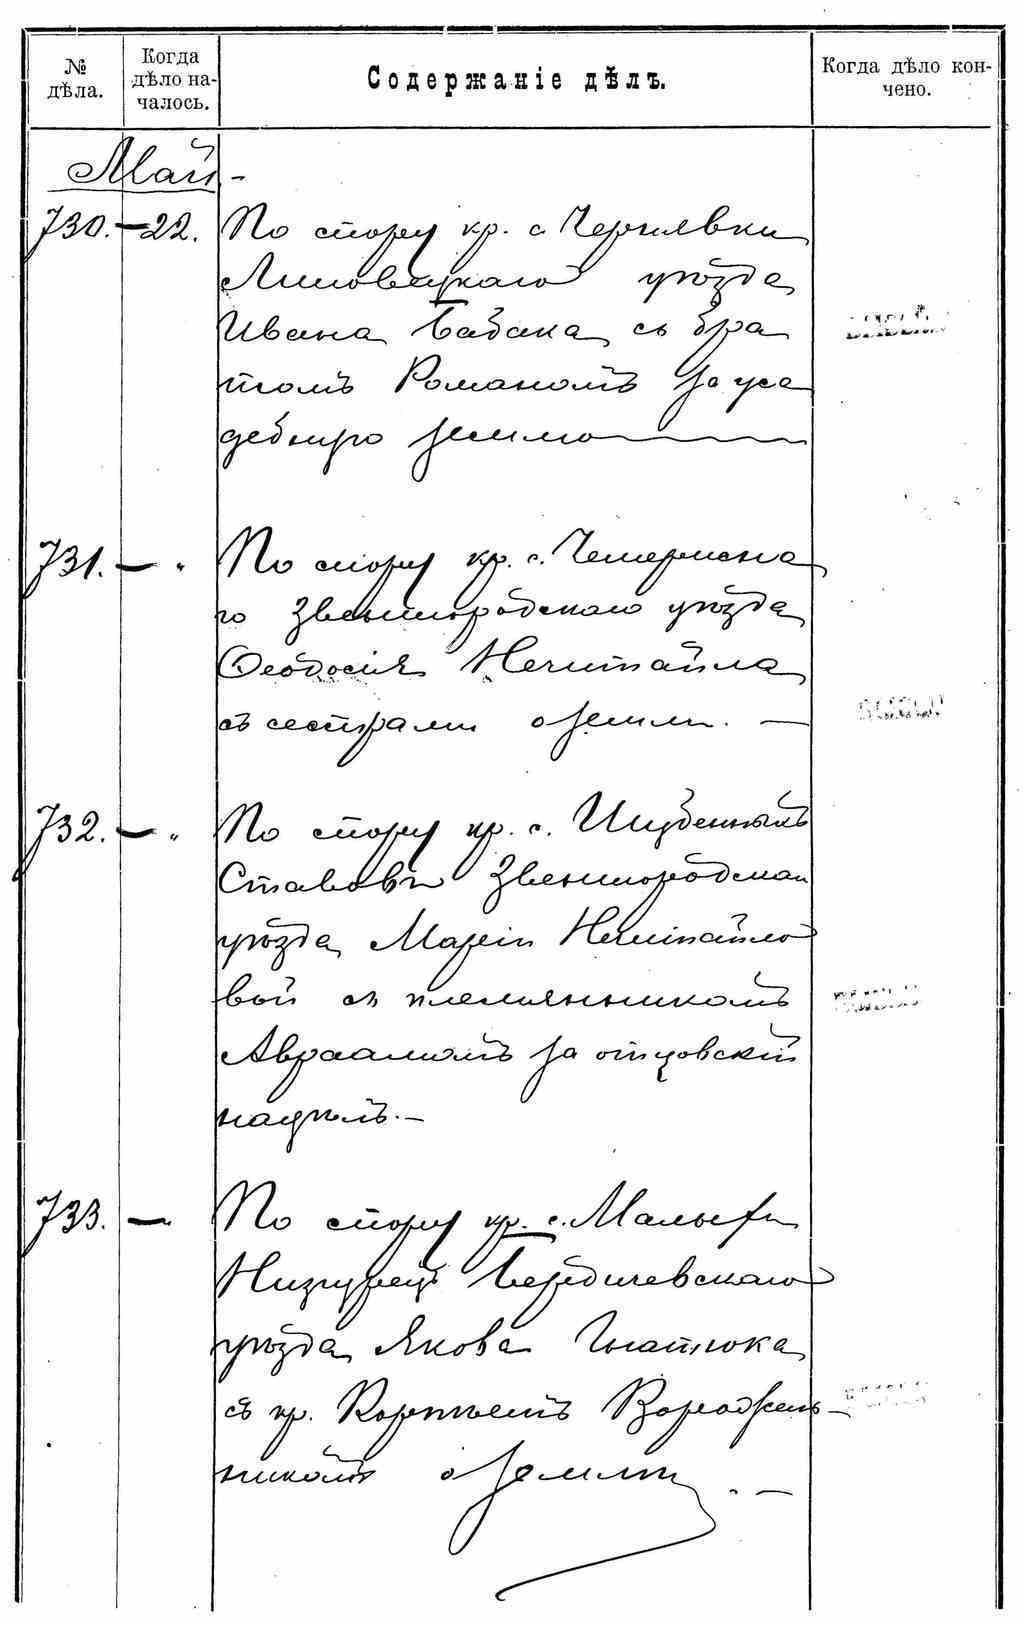 № дѣла.
Когда дѣло началось.
Содержаніе дѣлъ.
Когда дѣло кончено.
Май.
730. — 22. По спору кр. с. Чернявки
Липовецкаго уѣзда
Ивана Бабака съ бра
томъ Романомъ за уса
дебную землю
731. — " По спору кр. с. Чемериска
го Звенигородскаго уѣзда
Ѳеодосія Нечитайла
съ сестрами о земли. —
732. — " По спору кр. с. Шубенныхъ
Ставовъ Звенигородскаго
уѣзда Маріи Нечитайло
вой съ племянникомъ
Авраамомъ за отцовскій
надѣлъ. —
733. — " По спору кр. с. Малыхъ
Низгурецъ Бердичевскаго
уѣзда Якова Гнатюка
съ кр. Корнѣемъ
о земли. —